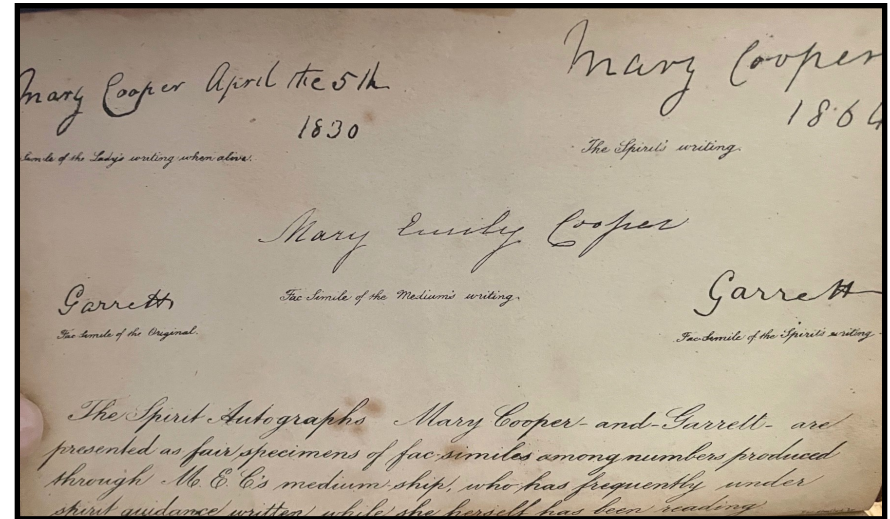 Mary Cooper April the 5th
1830
simile of the Lady's writing when alive.
Mary Cooper
1864
The Spirit's writing.
Mary Emily Cooper
Fac Simile of the Medium's writing.
Garrett
Fac Simile of the Original.
Garrett
Fac Simile of the Spirit's writing
The Spirit Autographs Mary Cooper - and - Garrett - are
presented as fair specimens of fac-similes among numbers produced
through M. E. C's medium-ship, who has frequently under
spirit guidance written while she herself has been reading